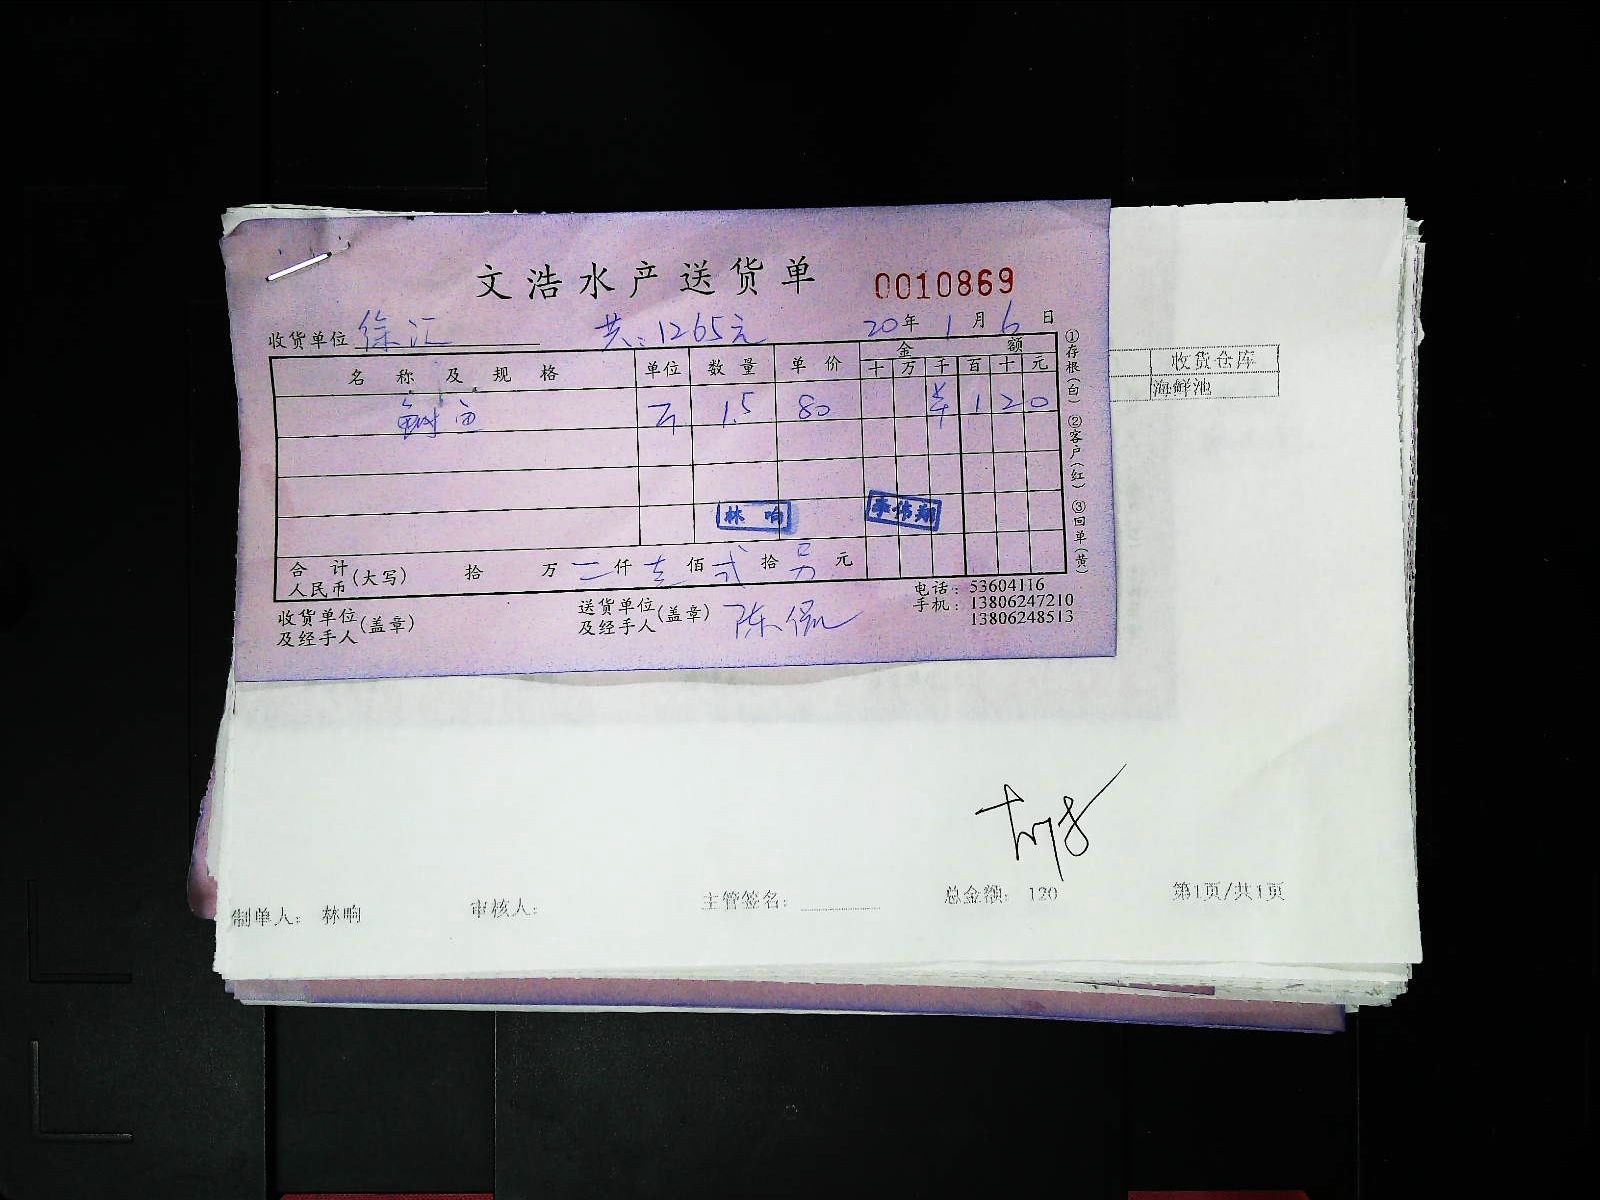 文浩水产送货单 0010869
收货单位 徐汇 共:1265元 20年1月6日
名称及规格 单位 数量 单价 金额
十 万 千 百 十 元
鲥鱼 斤 1.5 80 ¥ 1 2 0
林响 李伟翔
合计人民币(大写) 拾 万 仟 壹 佰 贰 拾 另 元
收货单位及经手人(盖章) 送货单位及经手人(盖章) 陈侃
电话:53604116
手机:13806247210
13806248513
①存根(白) ②客户(红) ③回单(黄)
收货仓库
海鲜池
制单人: 林响 审核人: 主管签名: 总金额: 120 第1页/共1页